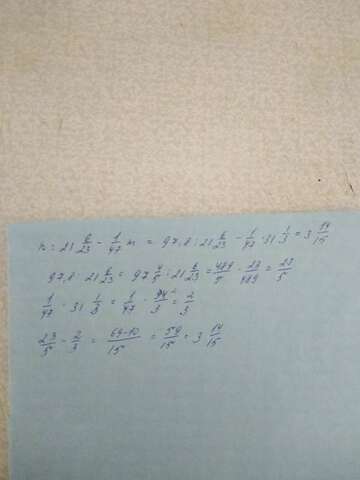 k : 21 6/23 - 1/47 n = 97,8 : 21 6/23 - 1/47 · 31 1/3 = 3 14/15
97,8 : 21 6/23 = 97 4/5 : 21 6/23 = 489/5 · 23/489 = 23/5
1/47 · 31 1/3 = 1/47 · 94/3 = 2/3
23/5 - 2/3 = 69-10/15 = 59/15 = 3 14/15